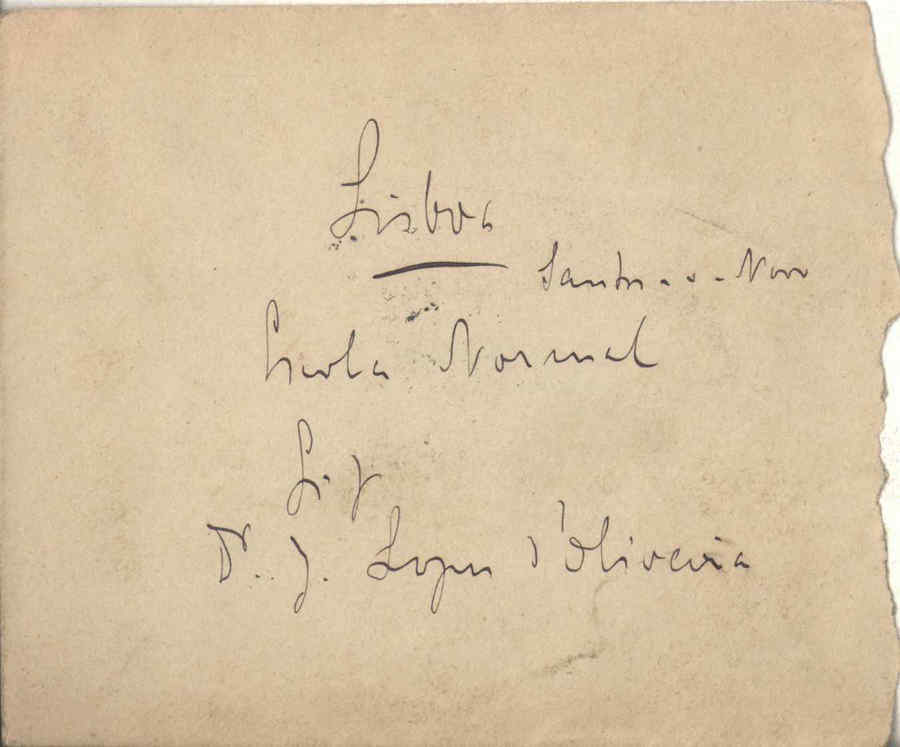 Lisboa
Santos-o-Novo
Escola Normal
Dr. J. Lopes d'Oliveira